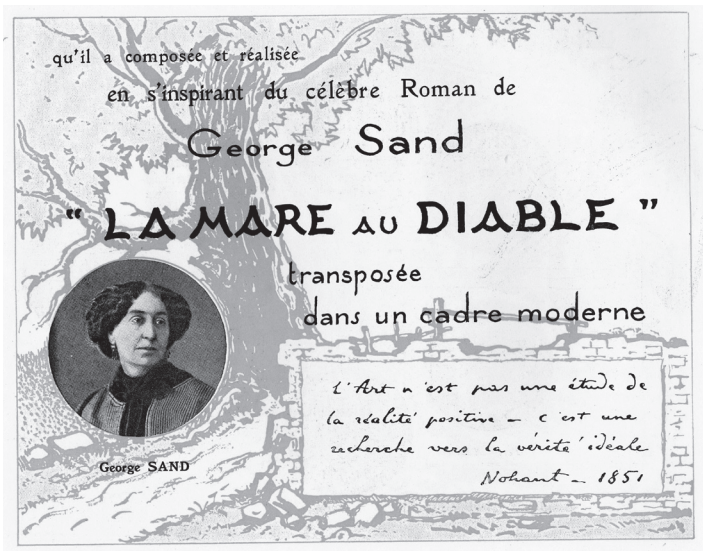 qu'il a composée et réalisée
en s'inspirant du célèbre Roman de
George Sand
" LA MARE AU DIABLE "
transposée
dans un cadre moderne
L'Art n'est pas une étude de
la réalité positive – c'est une
recherche vers la vérité idéale
Nohant – 1851
George SAND